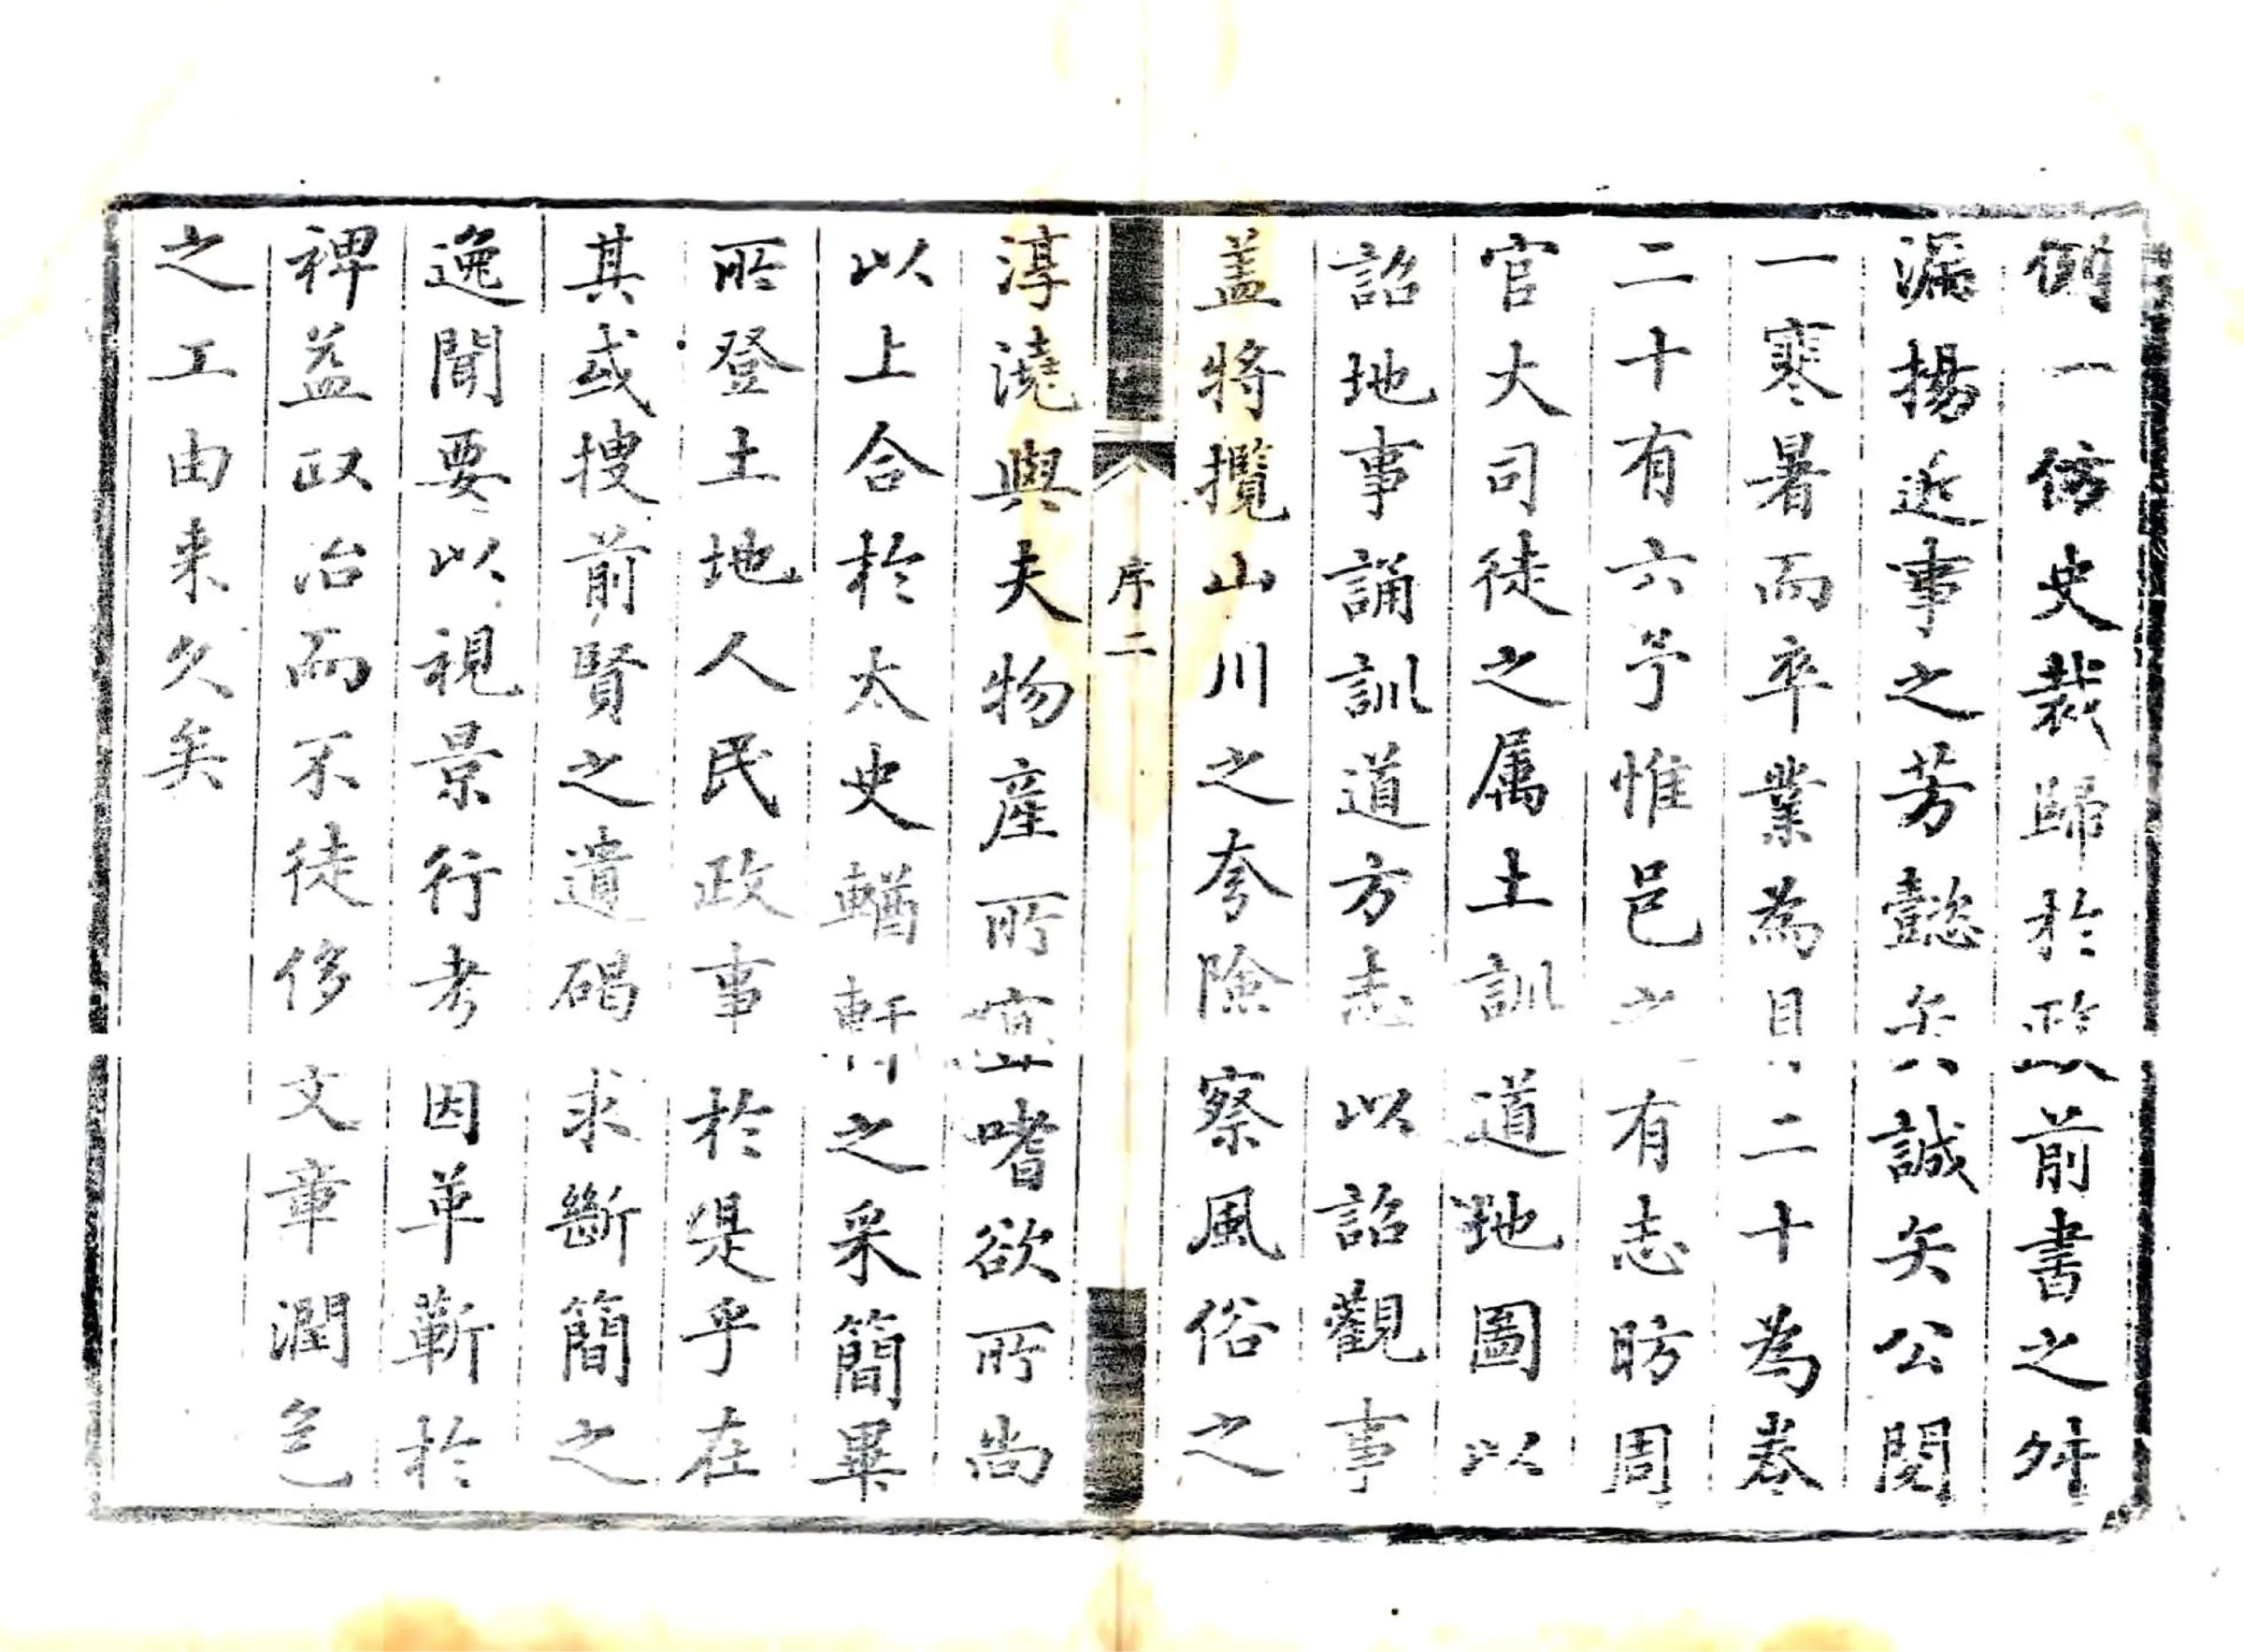 例一仿史裁歸於政前書之舛
漏揚近事之芳懿矣誠矣公閱
一寒暑而卒業為目二十為卷
二十有六予惟邑之有志昉周
官大司徒之属土訓道地圖以
詔地事誦訓道方志以詔觀事
盖将攬山川之夸險察風俗之
序二
淳澆與夫物產所宜嗜欲所尚
以上合於太史輶軒之采簡畢
所登土地人民政事於是乎在
其或搜前賢之遺碣求斷簡之
逸聞要以視景行考因革蘄於
裨益政治而不徒侈文章潤色
之工由来久矣